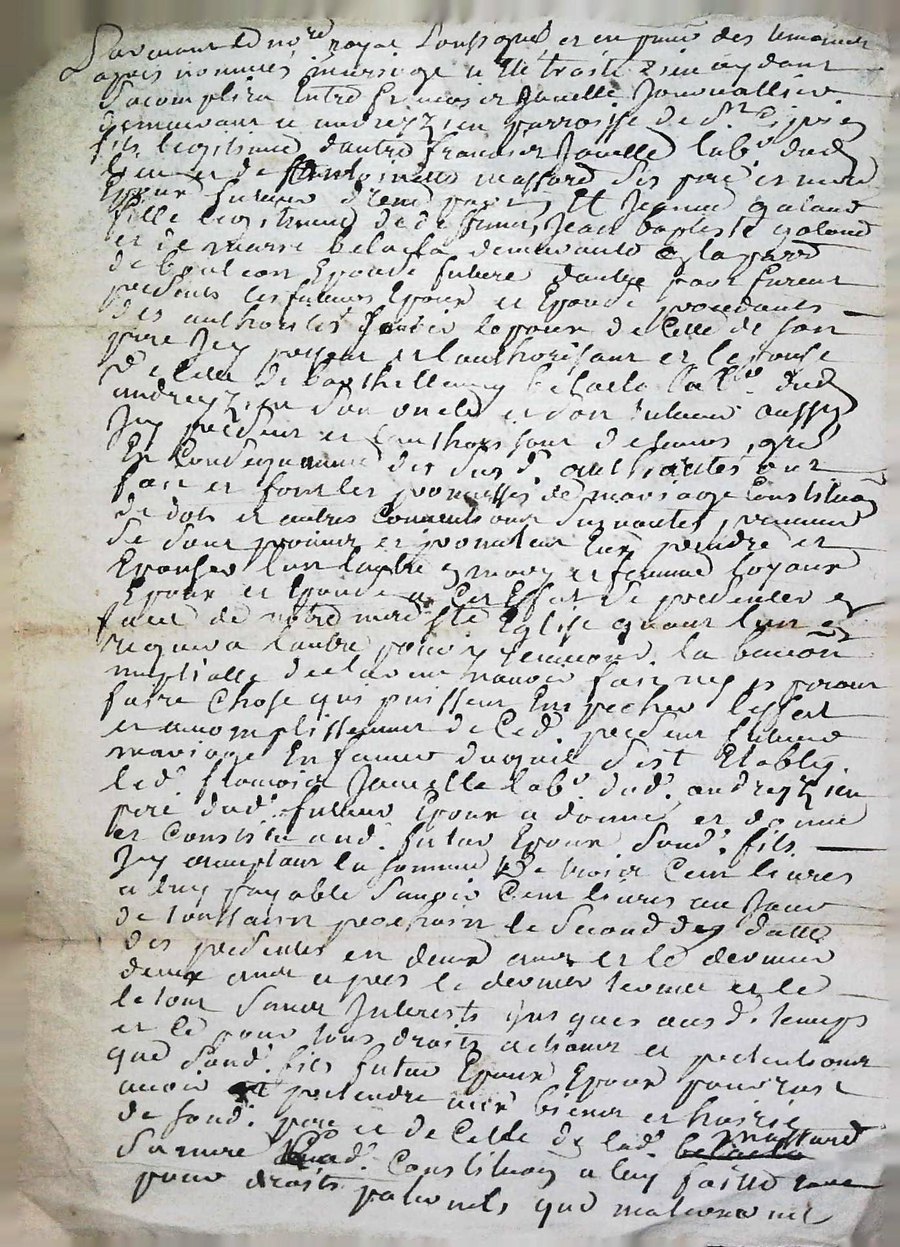 Pardevant le no.re royal soussigné et en pnce des temoins
apres nommés mariage a été traité &
sacomplira entre francois Jouelle Journallier
demeurant a andrezieu parroisse de St Ciprien
fils legitime dautre francois Jouelle lab.r dud.
lieu et de massard ses pere et mere
Epoux futur d'une part, Et Jeanne galand
fille legitime de deffunt Jean baptiste galand
et de marie belacla demeurante a la parr.
de bouteon Epouse future dautre part furent
presents les futurs Epoux et Epouse procedants
des authorités scavoir lepoux de Celle de son
pere Icy present et lauthorisant et lepouse
de Celle de barthellemy belacla lab.r dud.
andrezieu son oncle et son tuteur aussy
Icy present et lauthorisant desquels gré
En Consequence des susd. authorités ont
fait et font les promesses de mariage Constituon
de dots et autres Conventions suivantes, premiere
se sont promis et promettent soy prendre et
Epouser lun lautre en mary et femme loyaux
Epoux et Epouse a Cet Effet se presenter en
face de notre mere Ste Eglise quant lun en
requera lautre pour y recevoir la benon
nuptialle declarant navoir fait ny ne pouvoir
faire Chose qui puissent Empecher leffet
et accomplissement de Ced. present futur
mariage En faveur duquel s'est Etably
led. francois Jouelle lab.r dud. andrezieu
pere dud. futur Epoux a donné et donne
et Constitue aud. futur Epoux sond. fils
Icy acceptant la somme De trois Cent livres
a luy payable scavoir Cent livres au Jour
de toussaint prochain le second de datte
des presentes en deux ans et le dernier
deux ans apres le dernier terme et le
tout sans Interests jusques ausd. temps
et Ce pour tous droits actions et pretentions
que sond. fils futur Epoux Epoux pourrait
avoir et pretendre aux biens et hoirie
de sond. pere et de Celle de lad. massard
sa mere lad. Constituon a luy faitte tant
pour droits paternels que maternels